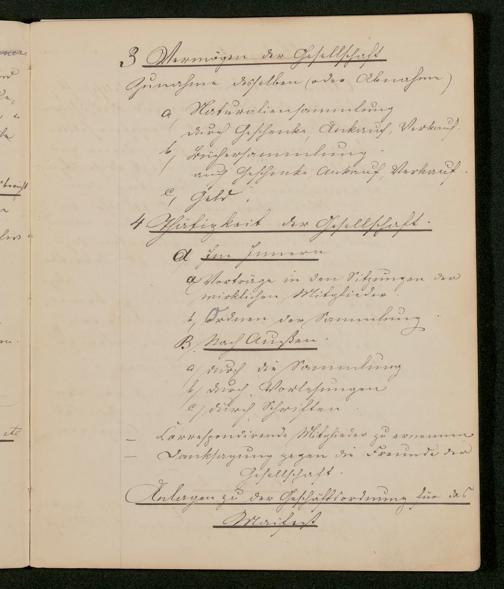 3 Vermögen der Gesellschaft
Zunahme desselben (oder Abnahme)
a, Naturaliensammlung
durch Geschenke, Ankauf, Verkauf.
b, Büchersammlung.
aus Geschenke, Ankauf, Verkauf.
c, Geld.
4 Thätigkeit der Gesellschaft.
A Im Innern
a, Vorträge in den Sitzungen der
wirklichen Mitglieder
b, Ordnen der Sammlung.
B, Nach Außen.
a, durch die Sammlung
b, durch Vorlesungen
c, durch Schriften.
– Correspondirende Mitglieder zu ernennen
– Danksagung gegen die Freunde der
Gesellschaft.
Anlagen zu der Geschäftsordnung für das